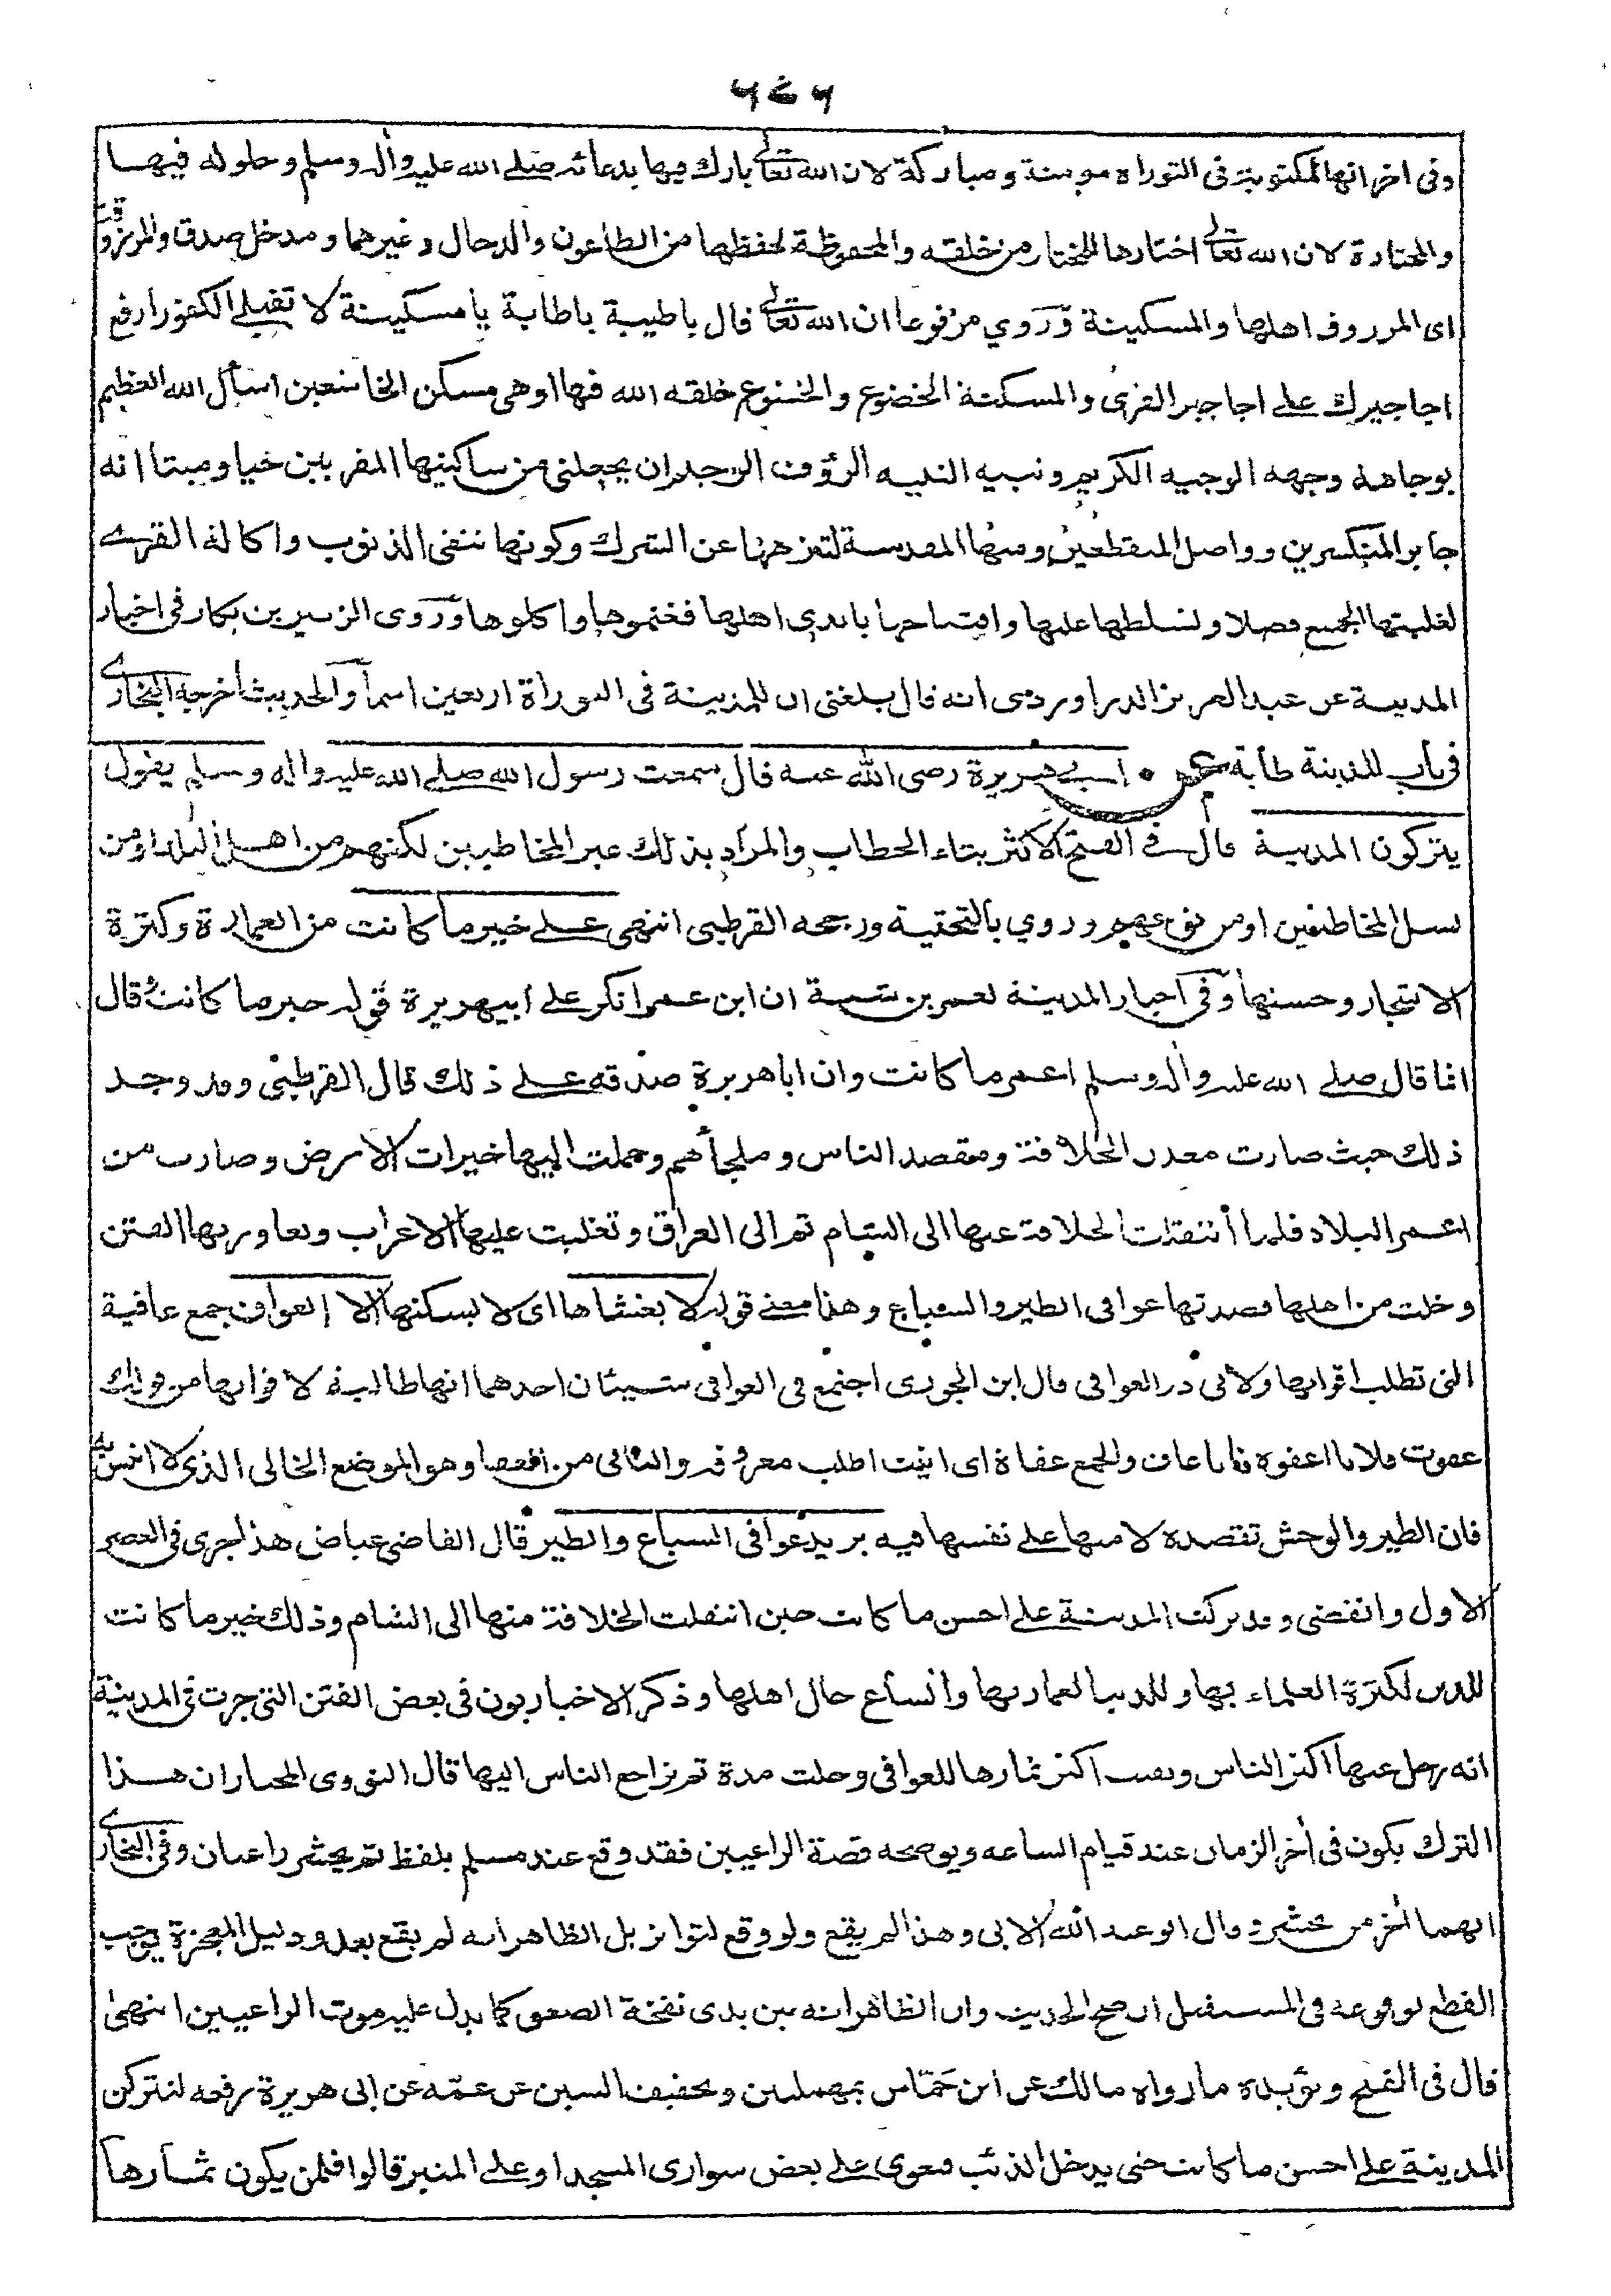 ٦٤٦
وفى اخرانها لمكتوبة فى التوراه مومنة ومباركة لان الله تعالى بارك فيها بدعائه صلے الله عليه وآله وسلم وحلوله فيها
والمختارة لان الله تعالى اختارها للمختار من خلقه والمحفوظة لحفظها من الطاعون والدجال وغيرهما ومدخل صدق والمرزوقة
اى المرزوق اهلها والمسكينة وروي مرفوعا ان الله تعالى قال ياطيبة ياطابة يا مسكينة لا تقبلى الكنوز ارفع
اجاجيرك على اجاجير القرى والمسكنة الخضوع والخشوع خلقه الله فيها او هى مسكن الخاشعين اسأل الله العظيم
بوجاهة وجهه الوجيه الكريم ونبيه النبيه الرؤف الرحيم ان يجعلنى من ساكنيها المقربين حيا وميتا انه
جابر المنكسرين وواصل المنقطعين ومنها المقدسة لتنزهها عن الشرك وكونها تنفى الذنوب واكالة القرى
لغلبتها الجميع فضلا ولتسلطها عليها وافتتاحها بايدى اهلها فغنموها واكلوها وروى الزبير بن بكار فى اخبار
المدينة عن عبد العزيز الدراوردى انه قال بلغنى ان للمدينة فى التوراة اربعين اسما والحديث اخرجه البخارى
فى باب المدينة طابة عن ابى هريرة رضى الله عنه قال سمعت رسول الله صلے الله عليه واله وسلم يقول
يتركون المدينة قال فى الفتح الاكثر بتاء الخطاب والمراد بذلك غير المخاطبين لكنهم من اهل البلد او من
نسل المخاطبين او من نوعهم وروي بالتحتية ورجحه القرطبى انتهى على خير ما كانت من العمارة وكثرة
الاشجار وحسنها وفى اخبار المدينة لعمر بن شبة ان ابن عمر انكر على ابيهريرة قوله خير ما كانت وقال
انما قال صلے الله عليه وآله وسلم اعمر ما كانت وان اباهريرة صدقه على ذلك قال القرطبى وقد وجد
ذلك حيث صارت معدن الخلافة ومقصد الناس وملجأهم وحملت اليها خيرات الارض وصارت من
اعمر البلاد فلما انتقلت الخلافة عنها الى الشام ثم الى العراق وتغلبت عليها الاعراب وتعاورتها الفتن
وخلت من اهلها قصدتها عوافى الطير والسباع وهذا معنى قوله لا يغشاها اى لا يسكنها الا العواف جمع عافية
التى تطلب اقواتها ولابى ذر العوافى قال ابن الجوزى اجتمع فى العوافى شيئان احدهما انها طالبة لاقواتها من قولك
عفوت فلانا اعفوه فانا عاف والجمع عفاة اى اتيت اطلب معروفه والثانى من العفا وهو الموضع الخالى الذى لا انيس به
فان الطير والوحش تقصده لامنها على نفسها فيه يريد عوافى السباع والطير قال القاضى عياض هذا جرى فى العصر
الاول وانقضى وقد تركت المدينة على احسن ما كانت حين انتقلت الخلافة منها الى الشام وذلك خير ما كانت
للدين لكثرة العلماء بها وللدنيا لعمارتها واتساع حال اهلها وذكر الاخباريون فى بعض الفتن التى جرت فى المدينة
انه رحل عنها اكثر الناس وبقيت اكثر ثمارها للعوافى وخلت مدة ثم تراجع الناس اليها قال النووى المختار ان هذا
الترك يكون فى آخر الزمان عند قيام الساعه ويوضحه قصة الراعيين فقد وقع عند مسلم بلفظ ثم يحشر راعيان وفى البخارى
انهما آخر من يحشر وقال ابو عبد الله الابى وهذا لم يقع ولو وقع لتواتر بل الظاهر انه لم يقع بعد ودليل المعجزة يوجب
القطع بوقوعه فى المستقبل ان صح الحديث وان الظاهر انه بين يدى نفخة الصعق كما يدل عليه موت الراعيين انتهى
قال فى الفتح ويؤيده ما رواه مالك عن ابن حماس بمهملتين وتخفيف السين عن عمّه عن ابى هريرة رفعه لتتركن
المدينة على احسن ما كانت حتى يدخل الذئب فيعوى على بعض سوارى المسجد او على المنبر قالوا فلمن يكون ثمارها